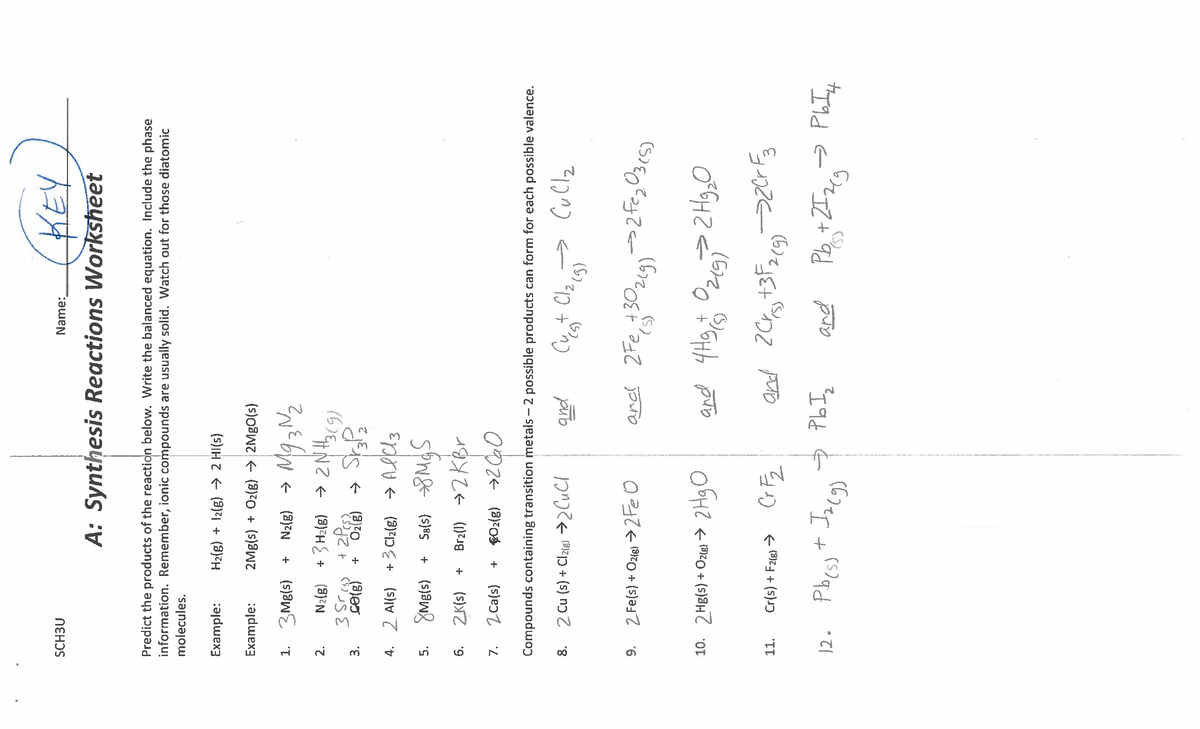 SCH3U Name: KEY
A: Synthesis Reactions Worksheet
Predict the products of the reaction below. Write the balanced equation. Include the phase
information. Remember, ionic compounds are usually solid. Watch out for those diatomic
molecules.
Example: H2(g) + I2(g) → 2 HI(s)
Example: 2Mg(s) + O2(g) → 2MgO(s)
1. 3 Mg(s) + N2(g) → Mg3N2
2. N2(g) + 3 H2(g) → 2 NH3(g)
3 Sr(s) + 2P(s)
3. O2(g) → Sr3P2
4. 2 Al(s) + 3 Cl2(g) → AlCl3
5. 8 Mg(s) + S8(s) → 8MgS
6. 2 K(s) + Br2(l) → 2 KBr
7. 2 Ca(s) + O2(g) → 2 CaO
Compounds containing transition metals – 2 possible products can form for each possible valence.
8. 2 Cu (s) + Cl2(g) → 2 CuCl and Cu(s) + Cl2(g) → CuCl2
9. 2 Fe(s) + O2(g) → 2 FeO and 2Fe(s) + 3O2(g) → 2Fe2O3(s)
10. 2 Hg(s) + O2(g) → 2 HgO and 4Hg(s) + O2(g) → 2Hg2O
11. Cr(s) + F2(g) → CrF2 and 2Cr(s) + 3F2(g) → 2CrF3
12. Pb(s) + I2(g) → PbI2 and Pb(s) + 2I2(g → PbI4